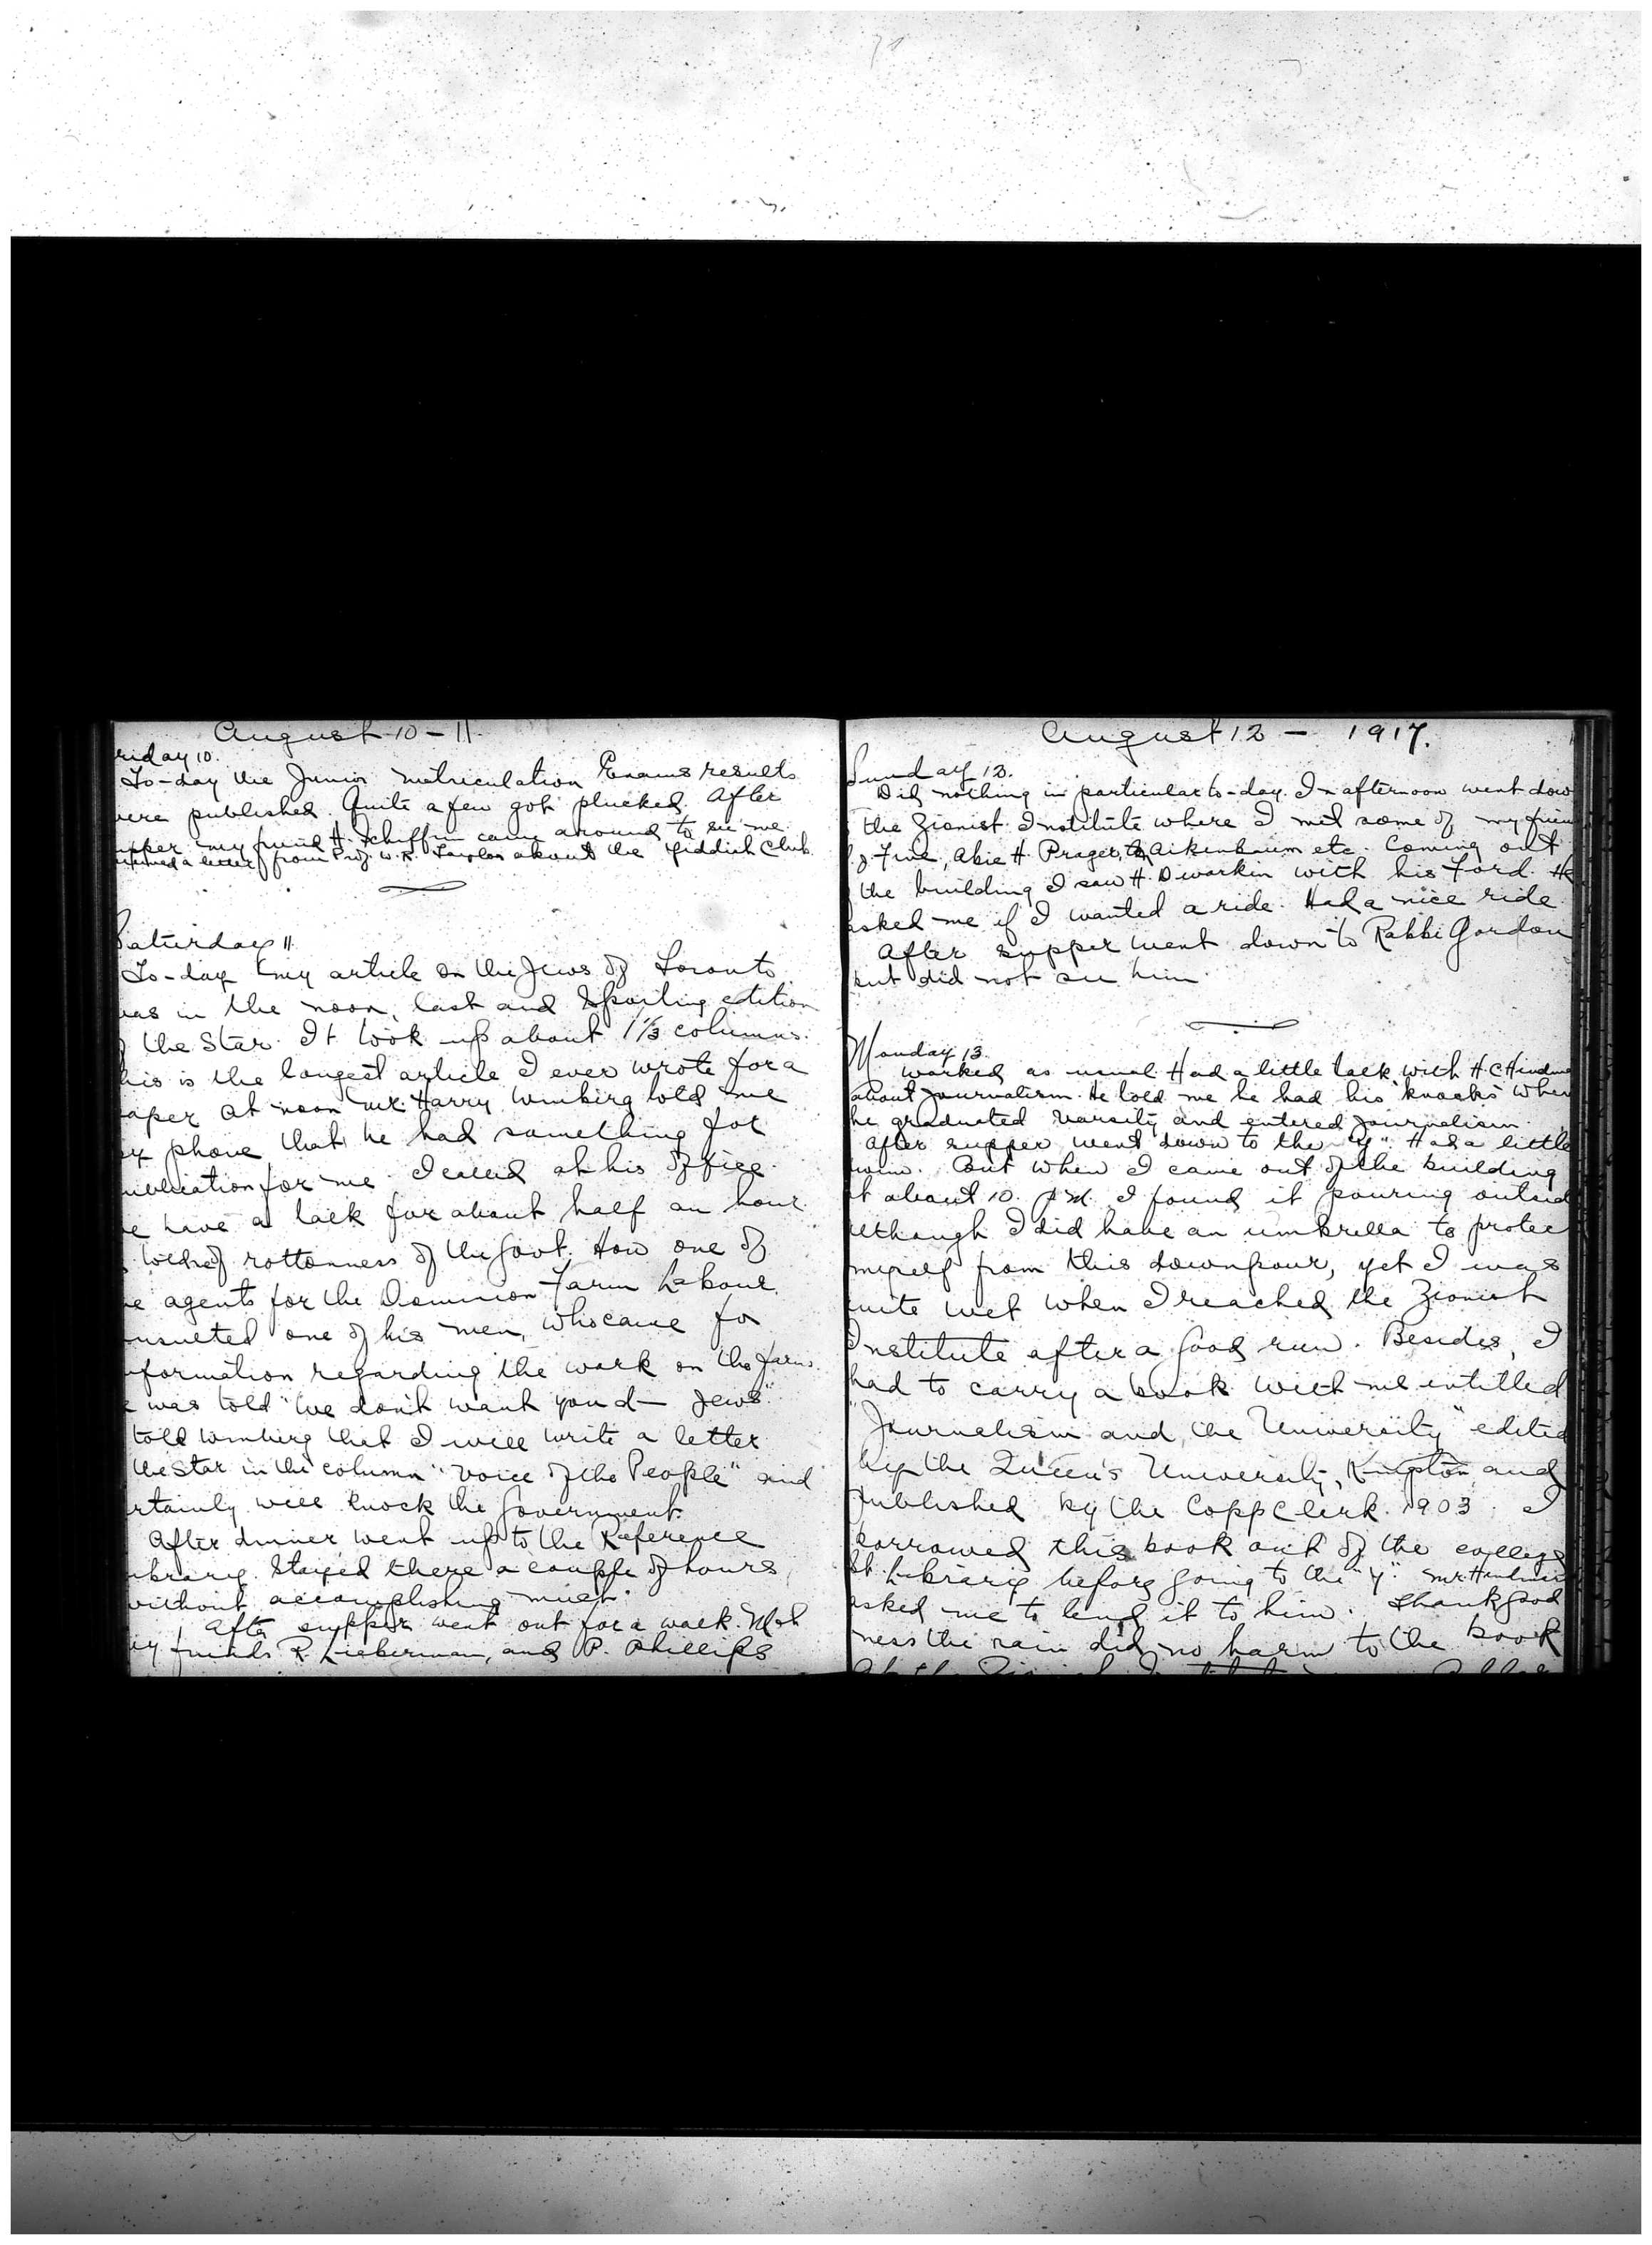 August 10 - 11.
riday 10.
To-day the Junior Matriculation Exams results
were published. Quite a few got plucked. After
upper my friend H. Schiffrin came around to see me.
a letter from Prof. W. R. Taylor about the Yiddish Club.
Saturday 11.
To-day my article on the Jews of Toronto
was in the noon, last and Sporting edition
the Star. It took up about 1⅓ columns.
his is the longest article I ever wrote for a
aper. At noon Mr. Harry Winberg told me
phone that he had something for
ublication for me. I called at his office.
e have a talk for about half an hour.
told of rottenness of the Govt. How one of
e agents for the Dominion Farm Labour
nsulted one of his men, who came for
nformation regarding the work on the farms.
was told "We don't want you d— Jews."
told Winberg that I will write a letter
the Star in the column "Voice of the People" and
rtainly will knock the Government.
After dinner went up to the Reference
ibrary. Stayed there a couple of hours
without accomplishing much.
After supper went out for a walk. Met
my friends R. Lieberman, and P. Phillips
August 12 - 1917.
Sunday 12.
Did nothing in particular to-day. In afternoon went dow
the Zionist Institute where I met some of my frien
Fine, Abie H. Prager, Aikenbaum etc. Coming out
the building I saw H. Dworkin with his Ford. He
asked me if I wanted a ride. Had a nice ride.
After supper went down to Rabbi Gordon
but did not see him.
Monday 13.
Worked as usual. Had a little talk with H. C. Hindma
about Journalism. He told me he had his "knocks" when
he graduated Varsity and entered Journalism.
After supper went down to the "Y". Had a little
swim. But when I came out of the building
at about 10. P.M. I found it pouring outsid
although I did have an umbrella to protec
myself from this downpour, yet I was
quite wet when I reached the Zionist
Institute after a good run. Besides, I
had to carry a book with me entitled
"Journalism and the University" edited
by the Queen's University, Kingston and
published by the Copp Clerk. 1903. I
borrowed this book out of the college
St. Library before going to the "Y". Mr. Hindman
asked me to lend it to him. Thank good
ness the rain did no harm to the book
At the Zionist Institute